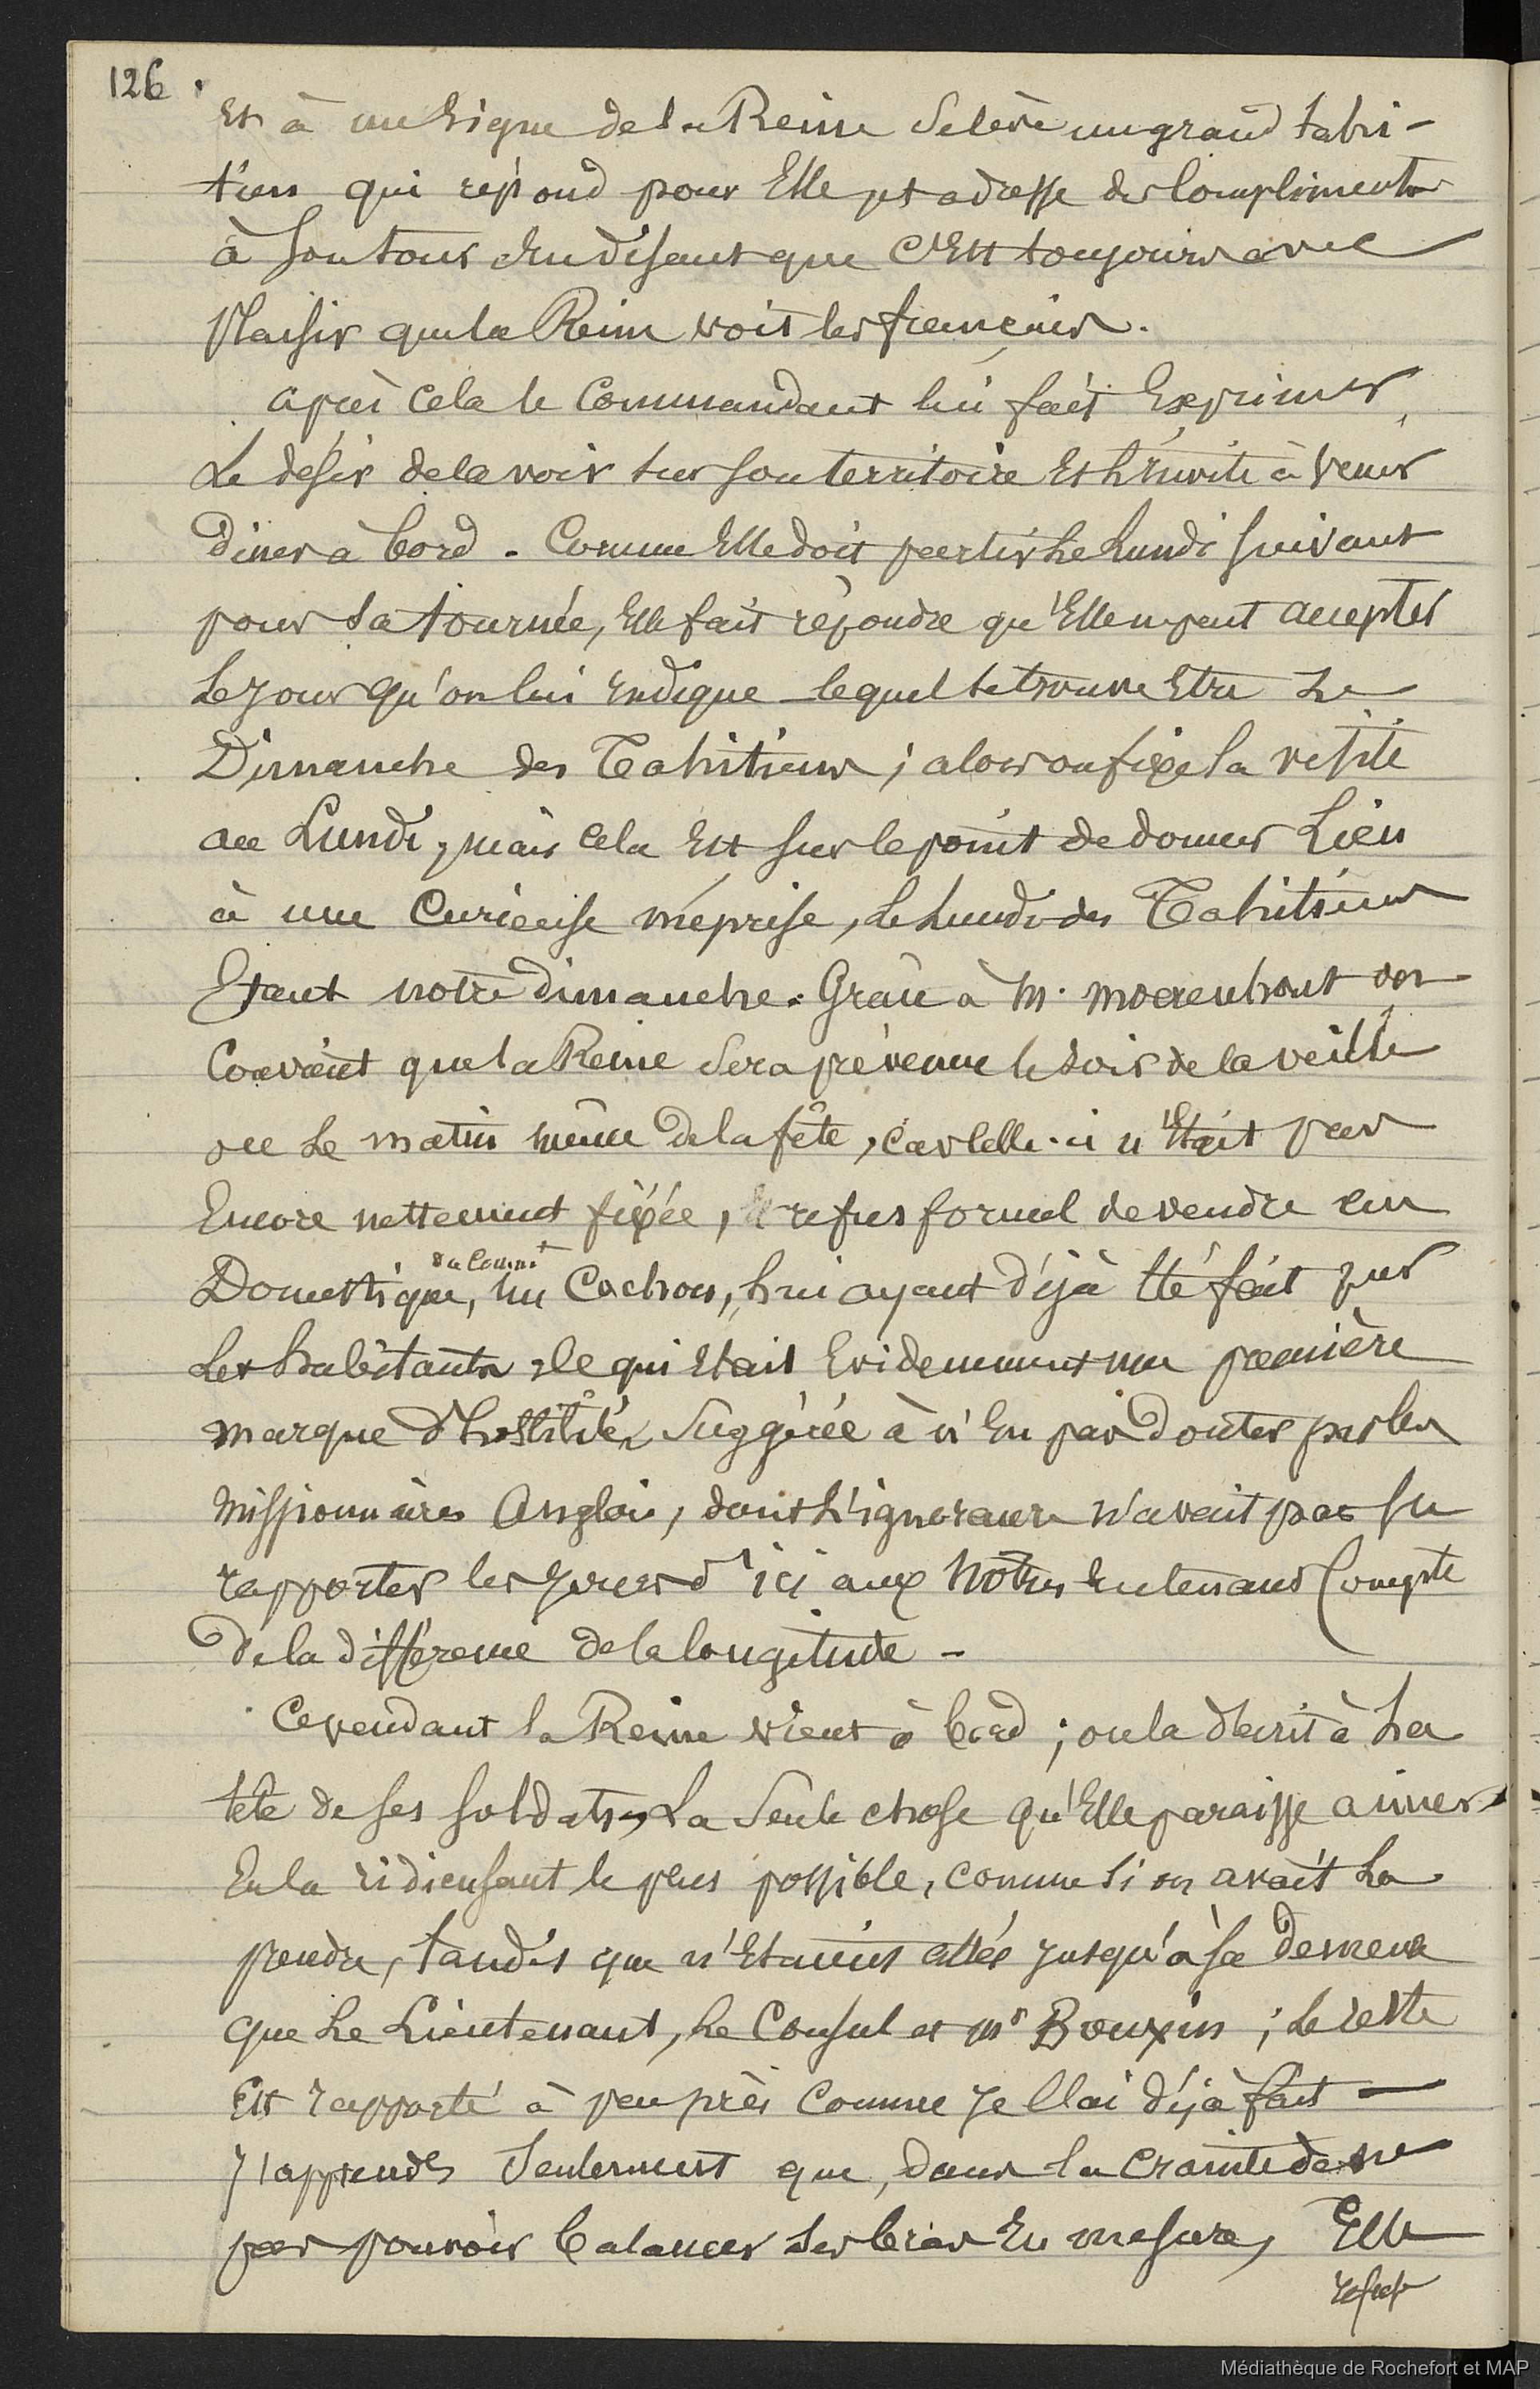 126.
Et à un Signe de la Reine Se lève un grand tahi-
tien qui répond pour Elle et adresse des Compliments
à Son tour En disant que C'Est toujours avec
Plaisir que la Reine voit les français.
après Cela le Commandant lui fait Exprimer
Le désir de la voir sur son territoire Et L'invite à venir
Diner à bord. Comme Elle doit partir Le Lundi suivant
pour Sa tournée, Elle fait répondre qu'Elle ne peut accepter
Le jour qu'on lui Indique lequel Se trouve Etre Le
Dimanche des Tahitiens ; alors on fixe la visite
au Lundi, mais Cela Est sur le point de donner Lieu
à une Curieuse méprise, Le Lundi des Tahitiens
Etant notre Dimanche. Grâce à M. Moerenhout on
Convient que la Reine Sera prévenue le Soir de la veille
ou Le matin même De la fête, Car Celle-ci n'Etait pas
Encore nettement fixée, Le refus formel de vendre au
Domestique, du Commt un Cochon, lui ayant déjà Eté fait par
Les habitants ; Ce qui Etait Evidemment une première
marque d'hostilité, Suggérée à n'En pas Douter par les
Missionnaires Anglais, dont L'ignorance n'avait pas su
rapporter les jours d'ici aux Nôtres En tenant Compte
De la différence de la longitude -
Cependant la Reine vient à bord ; on la décrit à La
tête de ses soldats, La Seule chose qu'Elle paraisse aimer
En la ridiculisant le plus possible, comme si on avait La
prendre, tandis que n'Etaient allés jusqu'à sa Demeure
que Le Lieutenant, Le Consul et Mr Bouxin ; Le reste
Est rapporté à peu près Comme Je l'ai déjà fait -
J'apprends Seulement que, dans la Crainte de ne
pas pouvoir Balancer Ses bras En mesure, Elle
refusa
Médiathèque de Rochefort et MAP